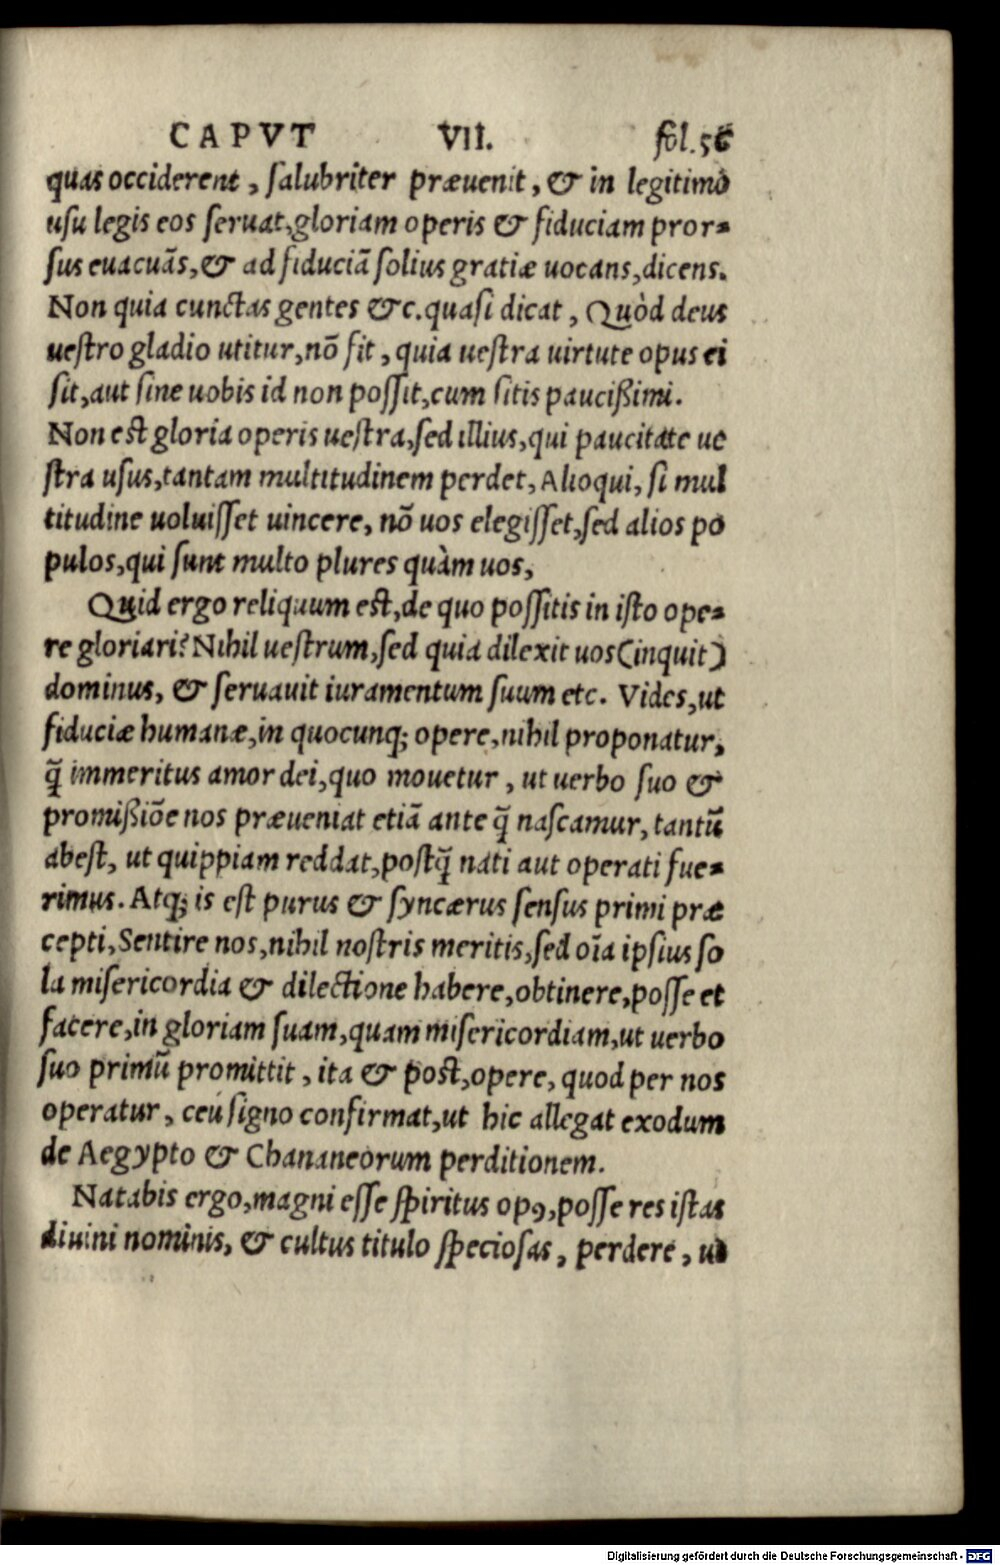 CAPVT VII. fol.56
quas occiderent, ſalubriter præuenit, & in legitimo
uſu legis eos ſeruat,gloriam operis & fiduciam pror-
ſus euacuãs,& ad fiduciã ſolius gratiæ uocans,dicens.
Non quia cunctas gentes &c.quaſi dicat, Quòd deus
ueſtro gladio utitur,nõ fit, quia ueſtra uirtute opus ei
ſit,aut ſine uobis id non poſſit,cum ſitis paucißimi.
Non eſt gloria operis ueſtra,ſed illius,qui paucitate ue
ſtra uſus,tantam multitudinem perdet, Alioqui, ſi mul
titudine uoluiſſet uincere, nõ uos elegiſſet,ſed alios po
pulos,qui ſunt multo plures quàm uos,
Quid ergo reliquum eſt,de quo poſſitis in iſto ope-
re gloriari? Nihil ueſtrum,ſed quia dilexit uos(inquit)
dominus, & ſeruauit iuramentum ſuum etc. Vides,ut
fiduciæ humanæ,in quocunq; opere,nihil proponatur,
q̃ immeritus amor dei,quo mouetur, ut uerbo ſuo &
promißiõe nos præueniat etiã ante q̃ naſcamur, tantũ
abeſt, ut quippiam reddat,poſtq̃ nati aut operati fue-
rimus. Atq; is eſt purus & ſyncærus ſenſus primi præ
cepti,Sentire nos,nihil noſtris meritis,ſed oĩa ipſius ſo
la miſericordia & dilectione habere,obtinere,poſſe et
facere,in gloriam ſuam,quam miſericordiam,ut uerbo
ſuo primũ promittit, ita & poſt,opere, quod per nos
operatur, ceú ſigno confirmat,ut hic allegat exodum
de Aegypto & Chananeorum perditionem.
Natabis ergo,magni eſſe ſpiritus opꝯ,poſſe res iſtas
diuini nominis, & cultus titulo ſpecioſas, perdere, ut
Digitalisierung gefördert durch die Deutsche Forschungsgemeinschaft - DFG